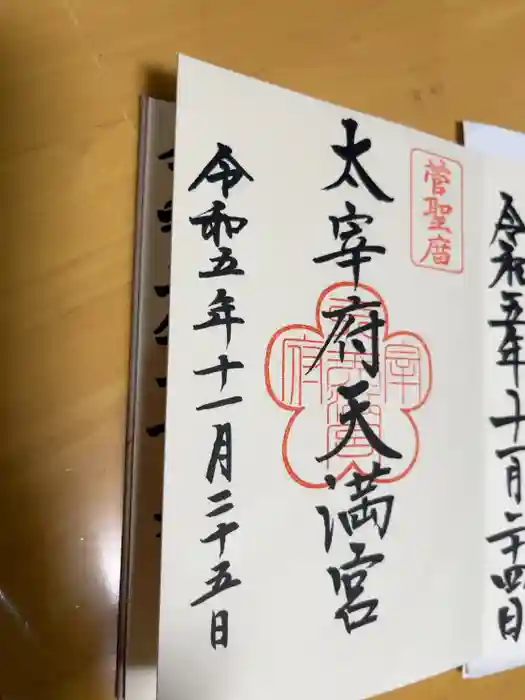 令和五年十一月二十四日
菅聖暦
太宰府天満宮
令和五年十一月二十五日